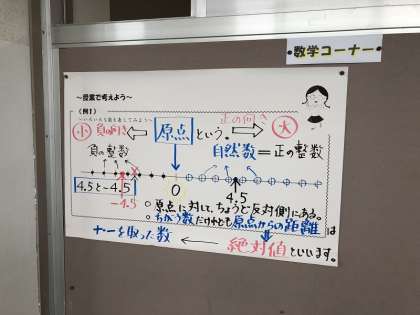 数学コーナー
～授業で考えよう～
(例1)
～いろいろな数を表してみよう～
小 負の向き ⇐ 原点 という。 正の向き ⇒ 大
負の整数 自然数=正の整数
4.5と-4.5 0 4.5
-4.5
○原点に対して、ちょうど反対側にある。
○ちがう数だけれども原点からの距離は
+-を取った数 ← 絶対値といいます。